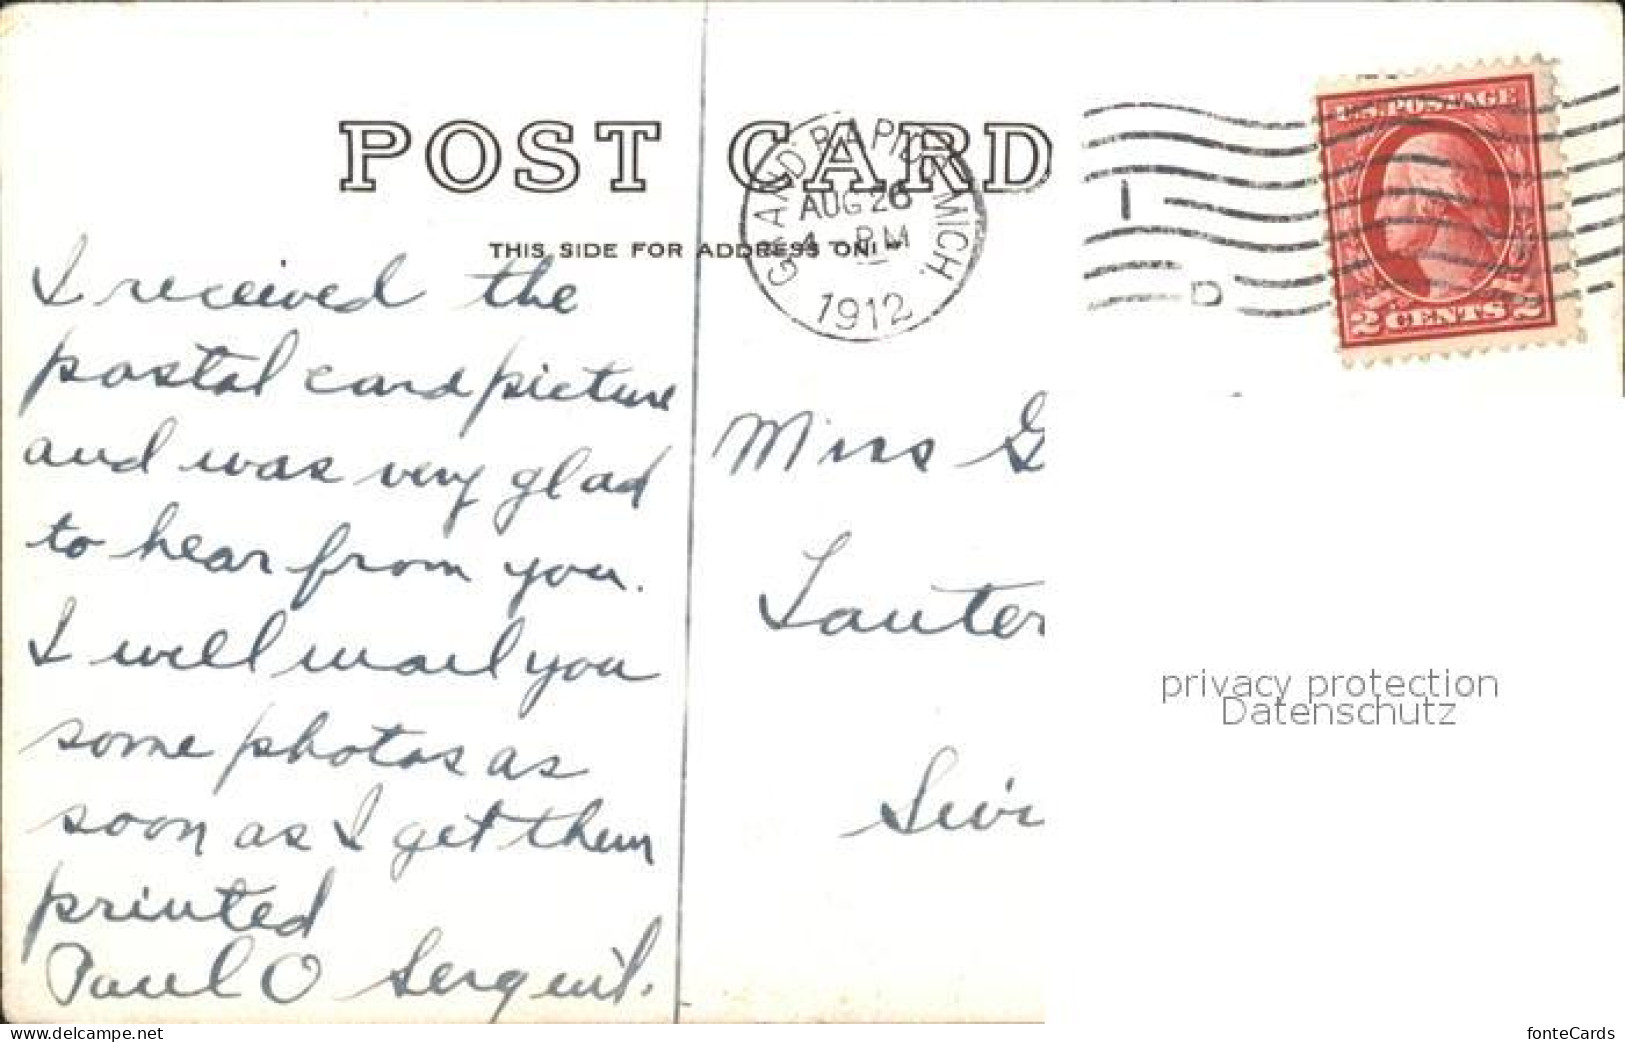 POST CARD
THIS SIDE FOR ADDRESS ONLY
GRAND RAPIDS, MICH.
AUG 26
4 - PM
1912
1
D
U.S. POSTAGE
2 CENTS 2
I received the
postal card picture
and was very glad
to hear from you.
I will mail you
some photos as
soon as I get them
printed
Paul O
Miss G
Lauter
privacy protection
Datenschutz
www.delcampe.net
fonteCards